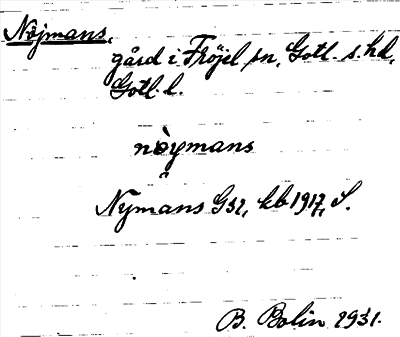 Nöjmans,
gård i Fröjel sn, Gotl. s. hd,
Gotl. l.
nòymans
Nymans G32, kb 1917, S.
B. Bolin 1931.